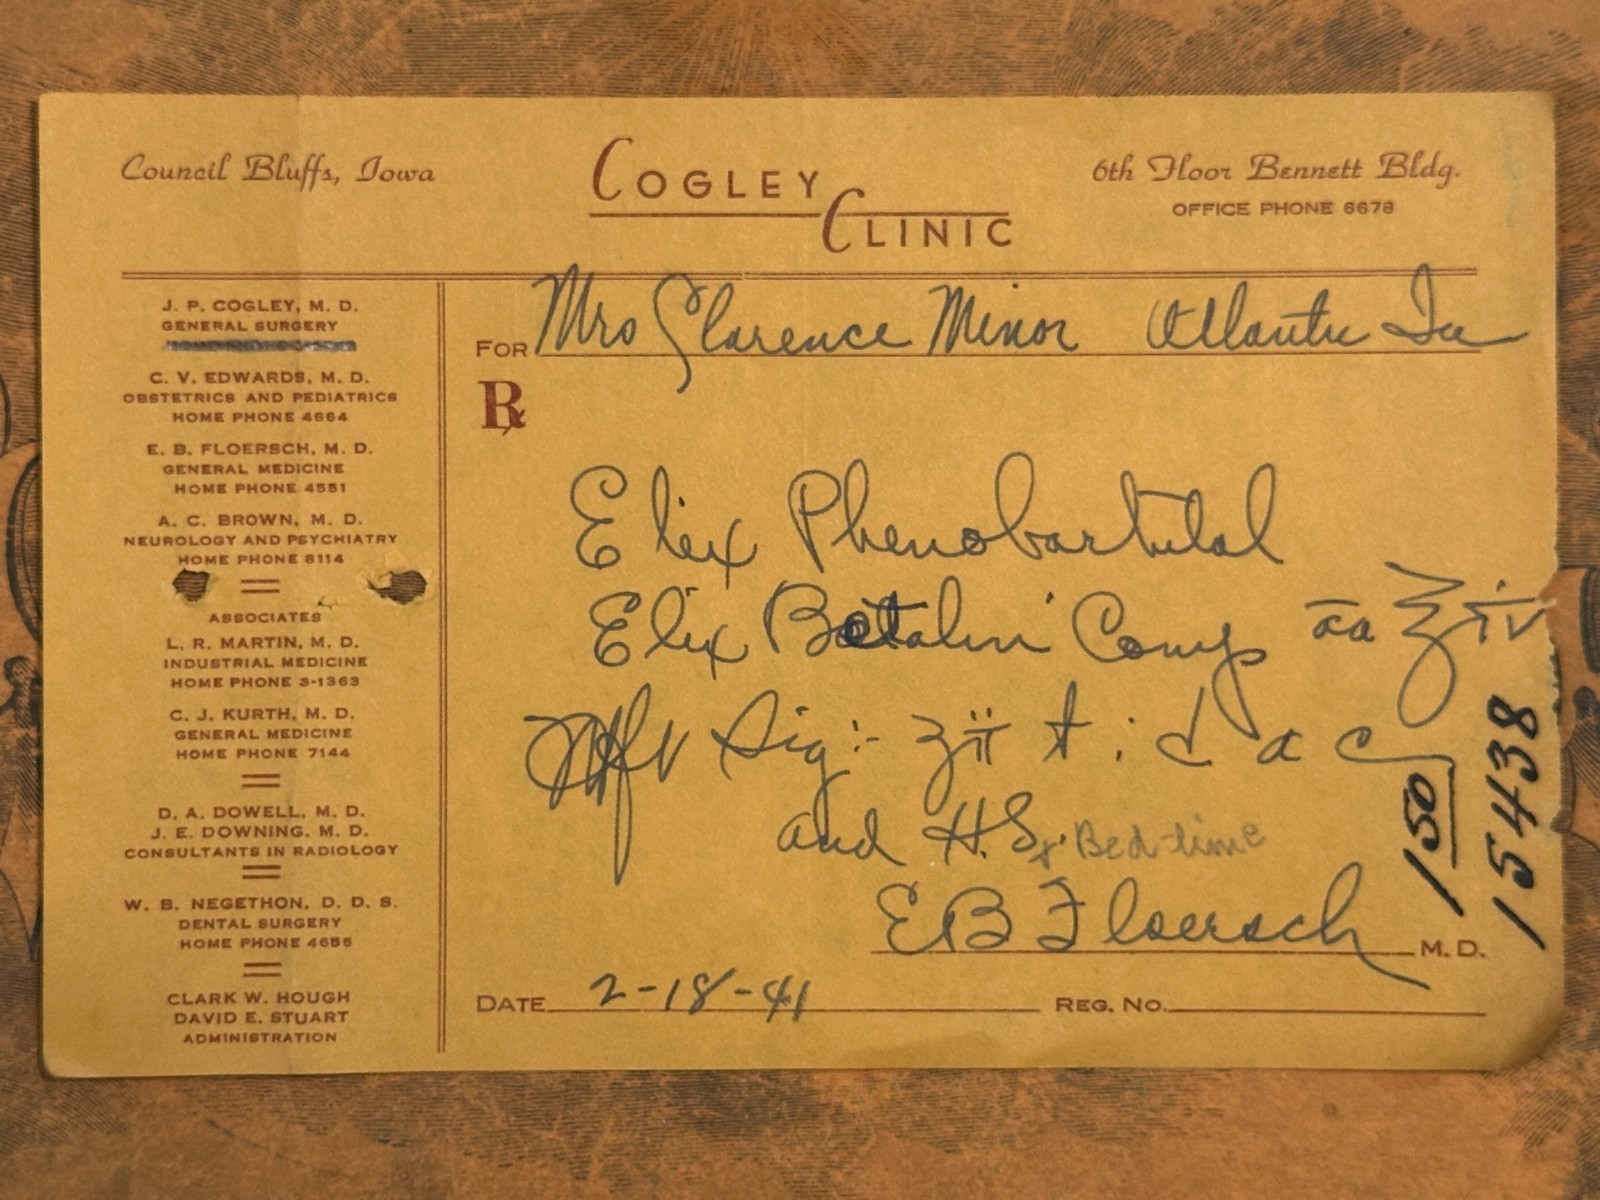 Council Bluffs, Iowa
COGLEY CLINIC
6th Floor Bennett Bldg.
OFFICE PHONE 6678
J. P. COGLEY, M. D.
GENERAL SURGERY
C. V. EDWARDS, M. D.
OBSTETRICS AND PEDIATRICS
HOME PHONE 4664
E. B. FLOERSCH, M. D.
GENERAL MEDICINE
HOME PHONE 4551
A. C. BROWN, M. D.
NEUROLOGY AND PSYCHIATRY
HOME PHONE 8114
ASSOCIATES
L. R. MARTIN, M. D.
INDUSTRIAL MEDICINE
HOME PHONE 3-1363
C. J. KURTH, M. D.
GENERAL MEDICINE
HOME PHONE 7144
D. A. DOWELL, M. D.
J. E. DOWNING, M. D.
CONSULTANTS IN RADIOLOGY
W. B. NEGETHON, D. D. S.
DENTAL SURGERY
HOME PHONE 4655
CLARK W. HOUGH
DAVID E. STUART
ADMINISTRATION
FOR Mrs Clarence Minor Atlantic Ia
Rx
Elix Phenobarbital
Elix Betalin Comp āā ℥ iv
Sig:- ʒii t.i.d a c
and H.S. Bed-time
E B Floersch M. D.
DATE 2-18-41 REG. NO.
150
15438